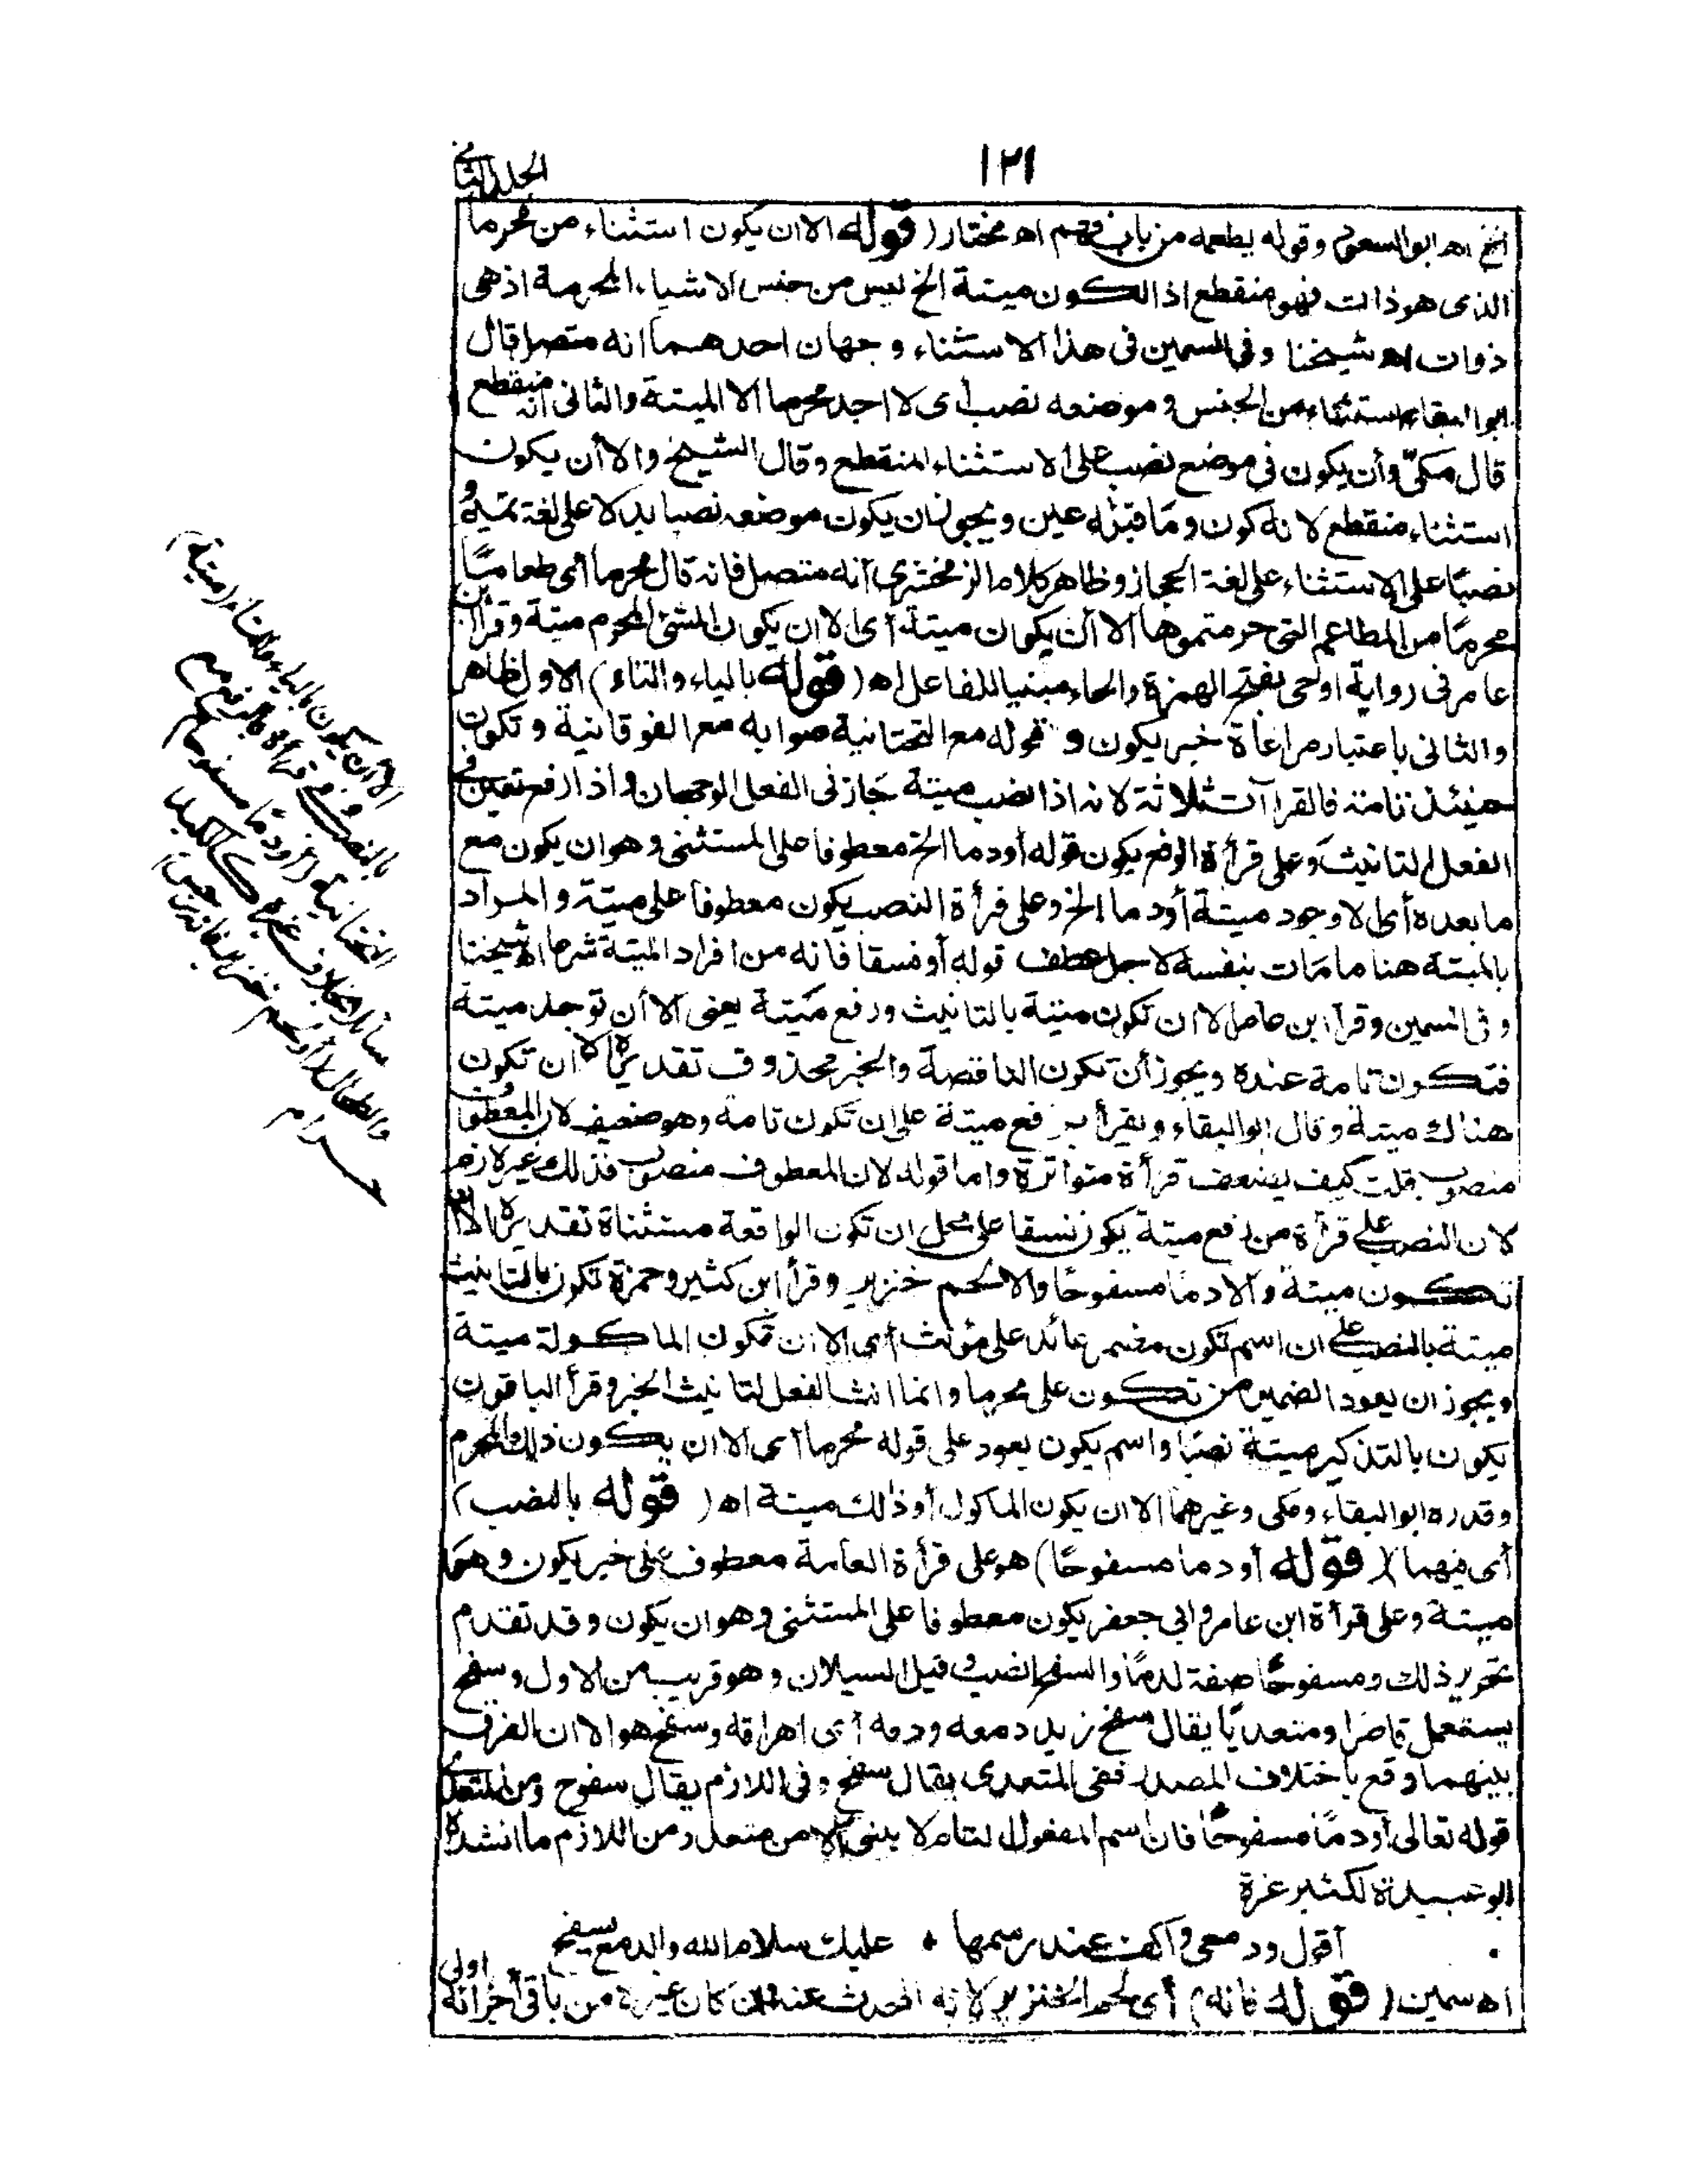 ١٢١
الجلد الثاني
الخ اه ابو السعود وقوله يطعمه من باب فهم اه مختار (قوله الا ان يكون استثناء من محرما
الذى هو ذات فهو منقطع اذ الكون ميتة الخ ليس من جنس الاشياء المحرمة اذ هى
ذوات اه شيخنا وفى السمين فى هذا الاستثناء وجهان احدهما انه متصل قال
ابو البقاء استثناء من الجنس وموضعه نصب أى لا اجد محرما الا الميتة والثانى انه منقطع
قال مكىّ وأن يكون فى موضع نصب على الاستثناء المنقطع وقال الشيخ والا أن يكون
استثناء منقطع لانه كون وما قبله عين ويجوز ان يكون موضعه نصبا بدلا على لغة تميم و
نصبًا على الاستثناء على لغة الحجاز وظاهر كلام الزمخشرى انه متصل فانه قال محرما أى طعاما
محرمًا من المطاعم التى حرمتموها الا أن يكون ميتة أى الا ان يكون الشئ المحرم ميتة وقرأ ابن
عامر فى رواية اوحى بفتح الهمزة والحاء مبنيا للفاعل اه (قوله بالياء والتاء) الاول ظاهر
والثانى باعتبار مراعاة خبر يكون وقوله مع التحتانية صوابه مع الفوقانية وتكون
حينئذ تامة فالقراآت ثلاثة لانه اذا نصب ميتة جاز فى الفعل الوجهان واذا رفع تعين فى
الفعل التانيث وعلى قرأة الرفع يكون قوله أو دما الخ معطوفا على المستثنى وهو ان يكون مع
ما بعده أى الا وجود ميتة أو دما الخ وعلى قرأة النصب يكون معطوفا على ميتة والمراد
بالميتة هنا ما مات بنفسه لاجل عطف قوله أو فسقا فانه من افراد الميتة شرعا اه شيخنا
وفى السمين وقرأ ابن عامر الا ان تكون ميتة بالتانيث ورفع ميتة يعنى الا أن توجد ميتة
فتكون تامة عنده ويجوز أن تكون الناقصة والخبر محذوف تقديره الا ان تكون
هناك ميتة وقال ابو البقاء ويقرأ برفع ميتة على ان تكون تامة وهو ضعيف لان المعطوف
منصوب قلت كيف يضعف قرأة متواترة واما قوله لان المعطوف منصوب فذلك غير لازم
لان النصب على قرأة من رفع ميتة يكون نسقا على محل ان تكون الواقعة مستثناة تقديره الا أن
تكون ميتة والا دمًا مسفوحًا والا لحم خنزير وقرأ ابن كثير وحمزة تكون بالتانيث
ميتة بالنصب على ان اسم تكون مضمر عائد على مؤنث أى الا ان تكون الماكولة ميتة
ويجوز ان يعود الضمير من تكون على محرما وانما انث الفعل لتانيث الخبر وقرأ الباقون
يكون بالتذكير ميتة نصبًا واسم يكون يعود على قوله محرما أى الا ان يكون ذلك المحرم
وقدره ابو البقاء ومكى وغيرهما الا ان يكون الماكول أو ذلك ميتة اه (قوله بالنصب)
أى فيهما (قوله أو دما مسفوحًا) هو على قرأة العامة معطوف على خبر يكون وهو
ميتة وعلى قرأة ابن عامر وابى جعفر يكون معطوفا على المستثنى وهو ان يكون وقد تقدم
تحرير ذلك ومسفوحًا صفة لدمًا والسفح الصب وقيل السيلان وهو قريب من الاول وسفح
يستعمل قاصرا ومتعديًا يقال سفح زيد دمعه ودمه أى اهراقه وسفح هو الا ان الفرق
بينهما وقع باختلاف المصدر ففى المتعدى يقال سفح وفى اللازم يقال سفوح ومن المتعدى
قوله تعالى أو دمًا مسفوحًا فان اسم المفعول التام لا يبنى الا من متعد ومن اللازم ما انشده
ابو عبيدة لكثير عزة
أقول ودمعى واكف عند رسمها * عليك سلام الله والدمع يسفح
اه سمين (قوله فانه) أى لحم الخنزير لانه المحدث عنه وان كان غيره من باقى أجزائه اولى
الا أن يكون بالياء والتاء (ميتة)
بالنصب وفى قرأة بالرفع مع
التحتانية (أو دمًا مسفوحا)
سائلا بخلاف غيره كالكبد
والطحال (أو لحم خنزير فانه رجس)
حرام